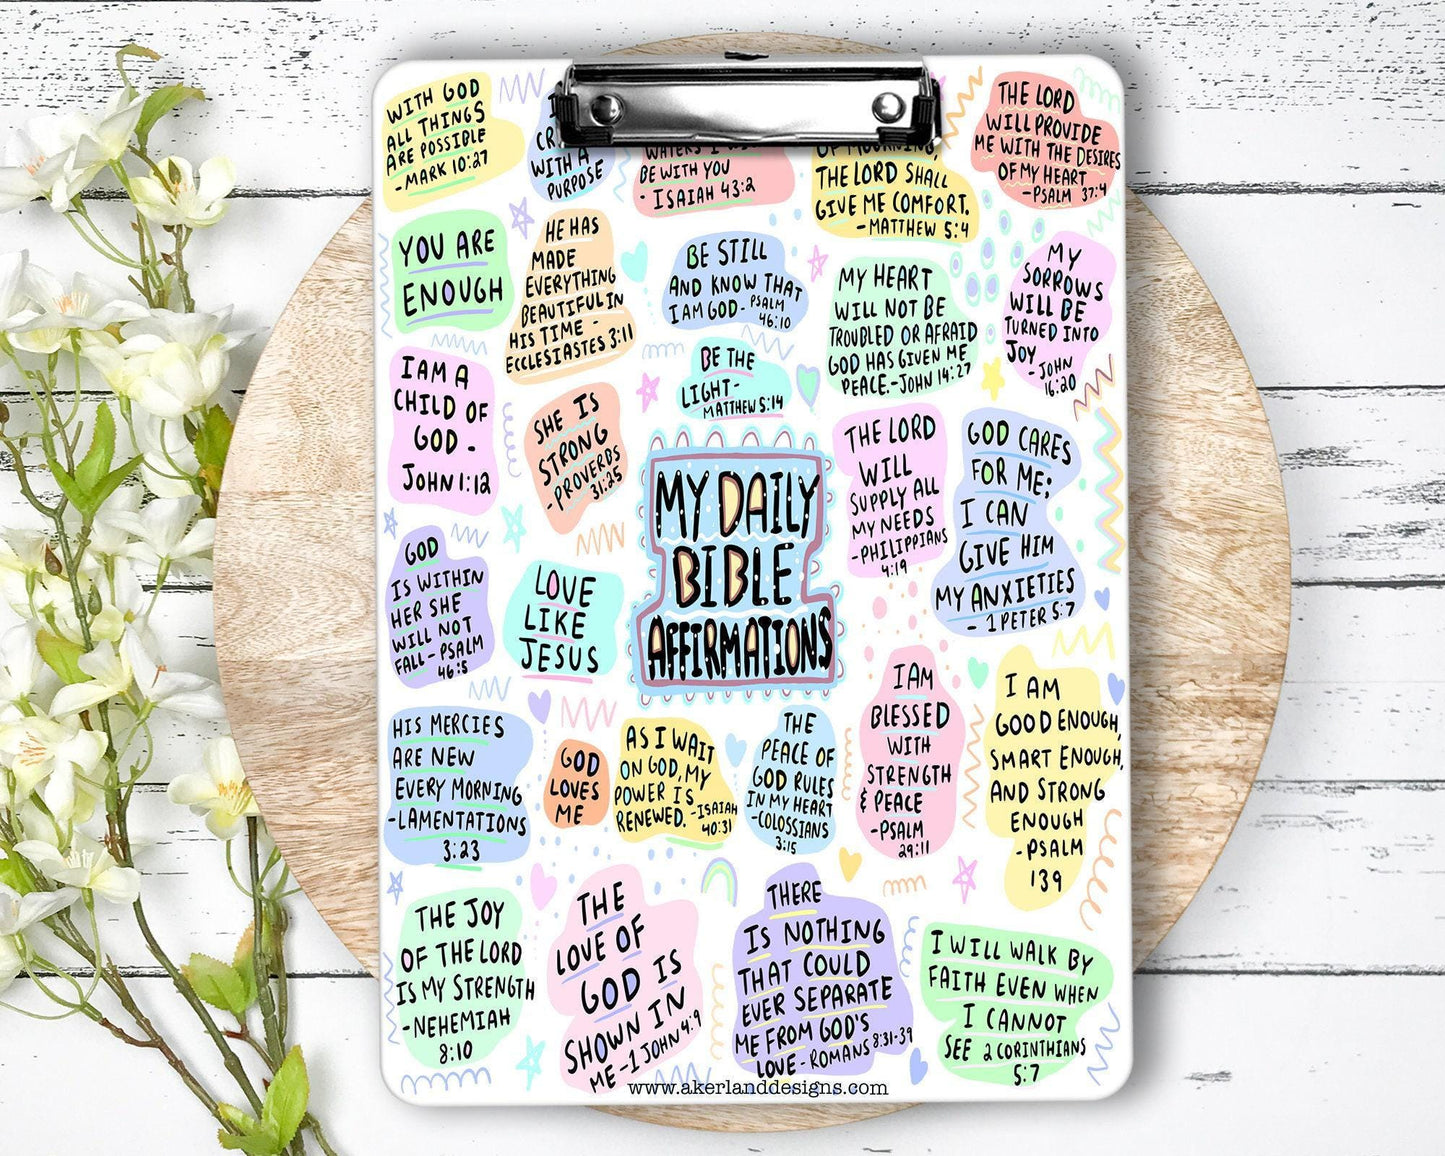 WITH GOD
ALL THINGS
ARE POSSIBLE
-MARK 10:27
WITH A
PURPOSE
WATERS I
BE WITH YOU
- ISAIAH 43:2
OF MOURNING,
THE LORD SHALL
GIVE ME COMFORT.
-MATTHEW 5:4
THE LORD
WILL PROVIDE
ME WITH THE DESIRES
OF MY HEART
-PSALM 37:4
YOU ARE
ENOUGH
HE HAS
MADE
EVERYTHING
BEAUTIFUL IN
HIS TIME -
ECCLESIASTES 3:11
BE STILL
AND KNOW THAT
I AM GOD - PSALM
46:10
MY HEART
WILL NOT BE
TROUBLED OR AFRAID
GOD HAS GIVEN ME
PEACE.-JOHN 14:27
MY
SORROWS
WILL BE
TURNED INTO
JOY
- JOHN
16:20
I AM A
CHILD OF
GOD -
JOHN 1:12
SHE IS
STRONG
-PROVERBS
31:25
BE THE
LIGHT -
MATTHEW 5:14
MY DAILY
BIBLE
AFFIRMATIONS
THE LORD
WILL
SUPPLY ALL
MY NEEDS
-PHILIPPIANS
4:19
GOD CARES
FOR ME;
I CAN
GIVE HIM
MY ANXIETIES
- 1 PETER 5:7
GOD
IS WITHIN
HER SHE
WILL NOT
FALL - PSALM
46:5
LOVE
LIKE
JESUS
HIS MERCIES
ARE NEW
EVERY MORNING
-LAMENTATIONS
3:23
GOD
LOVES
ME
AS I WAIT
ON GOD, MY
POWER IS
RENEWED. -ISAIAH
40:31
THE
PEACE OF
GOD RULES
IN MY HEART
-COLOSSIANS
3:15
I AM
BLESSED
WITH
STRENGTH
& PEACE
-PSALM
29:11
I AM
GOOD ENOUGH,
SMART ENOUGH,
AND STRONG
ENOUGH
-PSALM
139
THE JOY
OF THE LORD
IS MY STRENGTH
-NEHEMIAH
8:10
THE
LOVE OF
GOD IS
SHOWN IN
ME -1 JOHN 4:9
THERE
IS NOTHING
THAT COULD
EVER SEPARATE
ME FROM GOD'S
LOVE - ROMANS 8:31-39
I WILL WALK BY
FAITH EVEN WHEN
I CANNOT
SEE 2 CORINTHIANS
5:7
www.akerlanddesigns.com